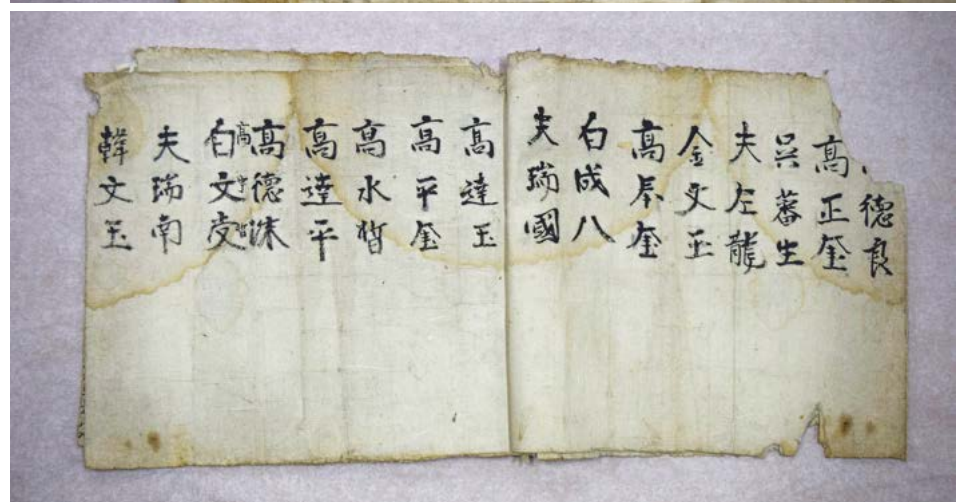 德良
高正奎
吳蕃生
夫左龍
金文玉
高辰奎
白成八
夫瑞國
高達玉
高平奎
高水晳
高達平
高德洙
白文
夫瑞南
韓文玉